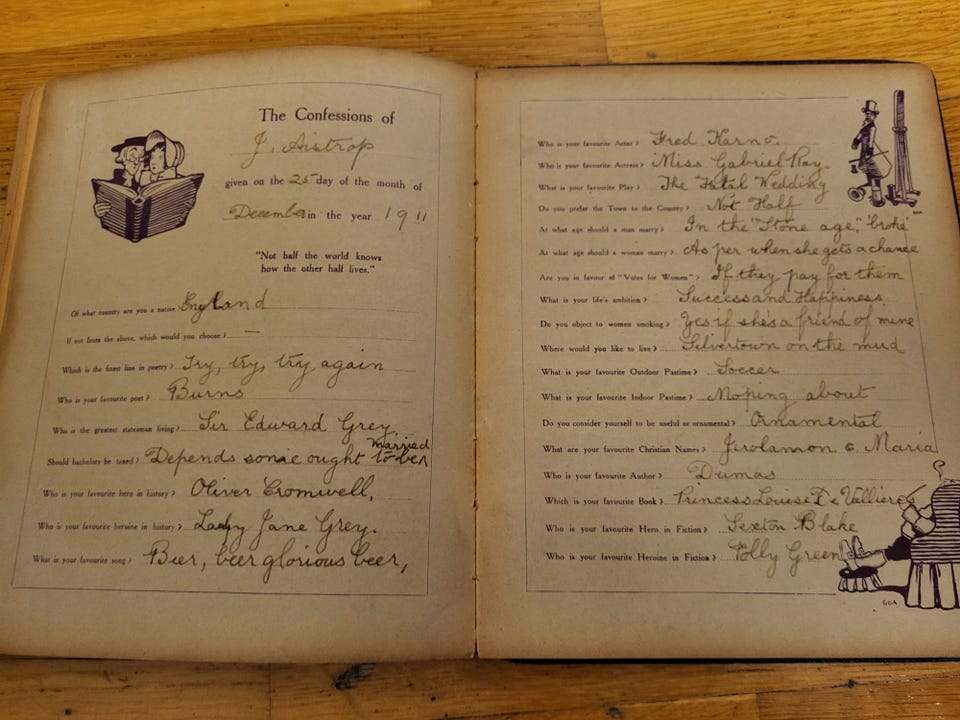 The Confessions of
J. Airstrop
given on the 25 day of the month of
December in the year 1911
"Not half the world knows
how the other half lives."
Of what country are you a native? England
If not from the above, which would you choose? —
Which is the finest line in poetry? Try, try, try again
Who is your favourite poet? Burns
Who is the greatest statesman living? Sir Edward Grey.
married
Should bachelors be taxed? Depends some ought to be
Who is your favourite hero in history? Oliver Cromwell,
Who is your favourite heroine in history? Lady Jane Grey.
What is your favourite song? Beer, beer glorious beer,
Who is your favourite Actor? Fred Karno.
Who is your favourite Actress? Miss Gabriel Ray.
What is your favourite Play? The Fatal Wedding
Do you prefer the Town to the Country? Not Half
At what age should a man marry? In the "Stone age," "broke"
At what age should a woman marry? As per when she gets a chance
Are you in favour of "Votes for Women"? If they pay for them
What is your life's ambition? Success and Happiness.
Do you object to women smoking? Yes if she's a friend of mine
Where would you like to live? Silvertown on the mud
What is your favourite Outdoor Pastime? Soccer
What is your favourite Indoor Pastime? Moping about
Do you consider yourself to be useful or ornamental? Ornamental
What are your favourite Christian Names? Maria
Who is your favourite Author? Dumas
Which is your favourite Book? Princess Louise De Valliere
Who is your favourite Hero in Fiction? Sexton Blake
Who is your favourite Heroine in Fiction? Polly Green